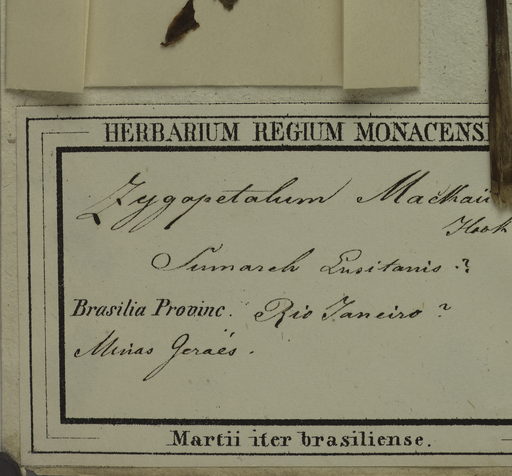 HERBARIUM REGIUM MONACENS
Zygopetalum Mackai
Hook
Sumareh Lusitanis ?
Brasilia Provinc. Rio Janeiro ?
Minas Geraës.
Martii iter brasiliense.